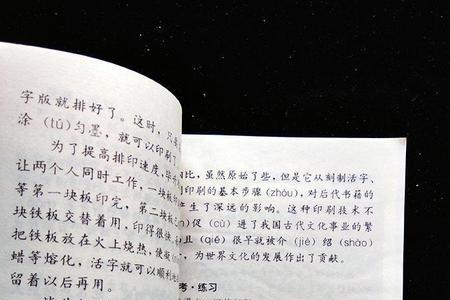 字版就排好了。这时，只要
涂（tú）匀墨，就可以印刷了
为了提高排印速度，毕
让两个人同时工作，一块板印
等第一块板印完，第二块板已
块铁板交替着用，印得很快。
把铁板放在火上烧热，使
蜡等熔化，活字就可以顺利地
留着以后再用。
比，虽然原始了些，但是它从刻制活字、
印刷的基本步骤（zhòu），对后代书籍的
生了深远的影响。这种印刷技术不
促（cù）进了我国古代文化事业的繁
且（qiě）很早就被介（jiè）绍（shào）
，为世界文化的发展作出了贡献。
考·练习